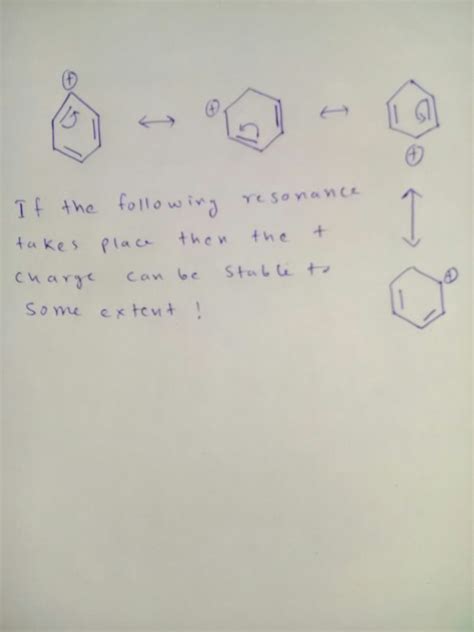 If the following resonance
takes place then the +
charge can be stable to
some extent !